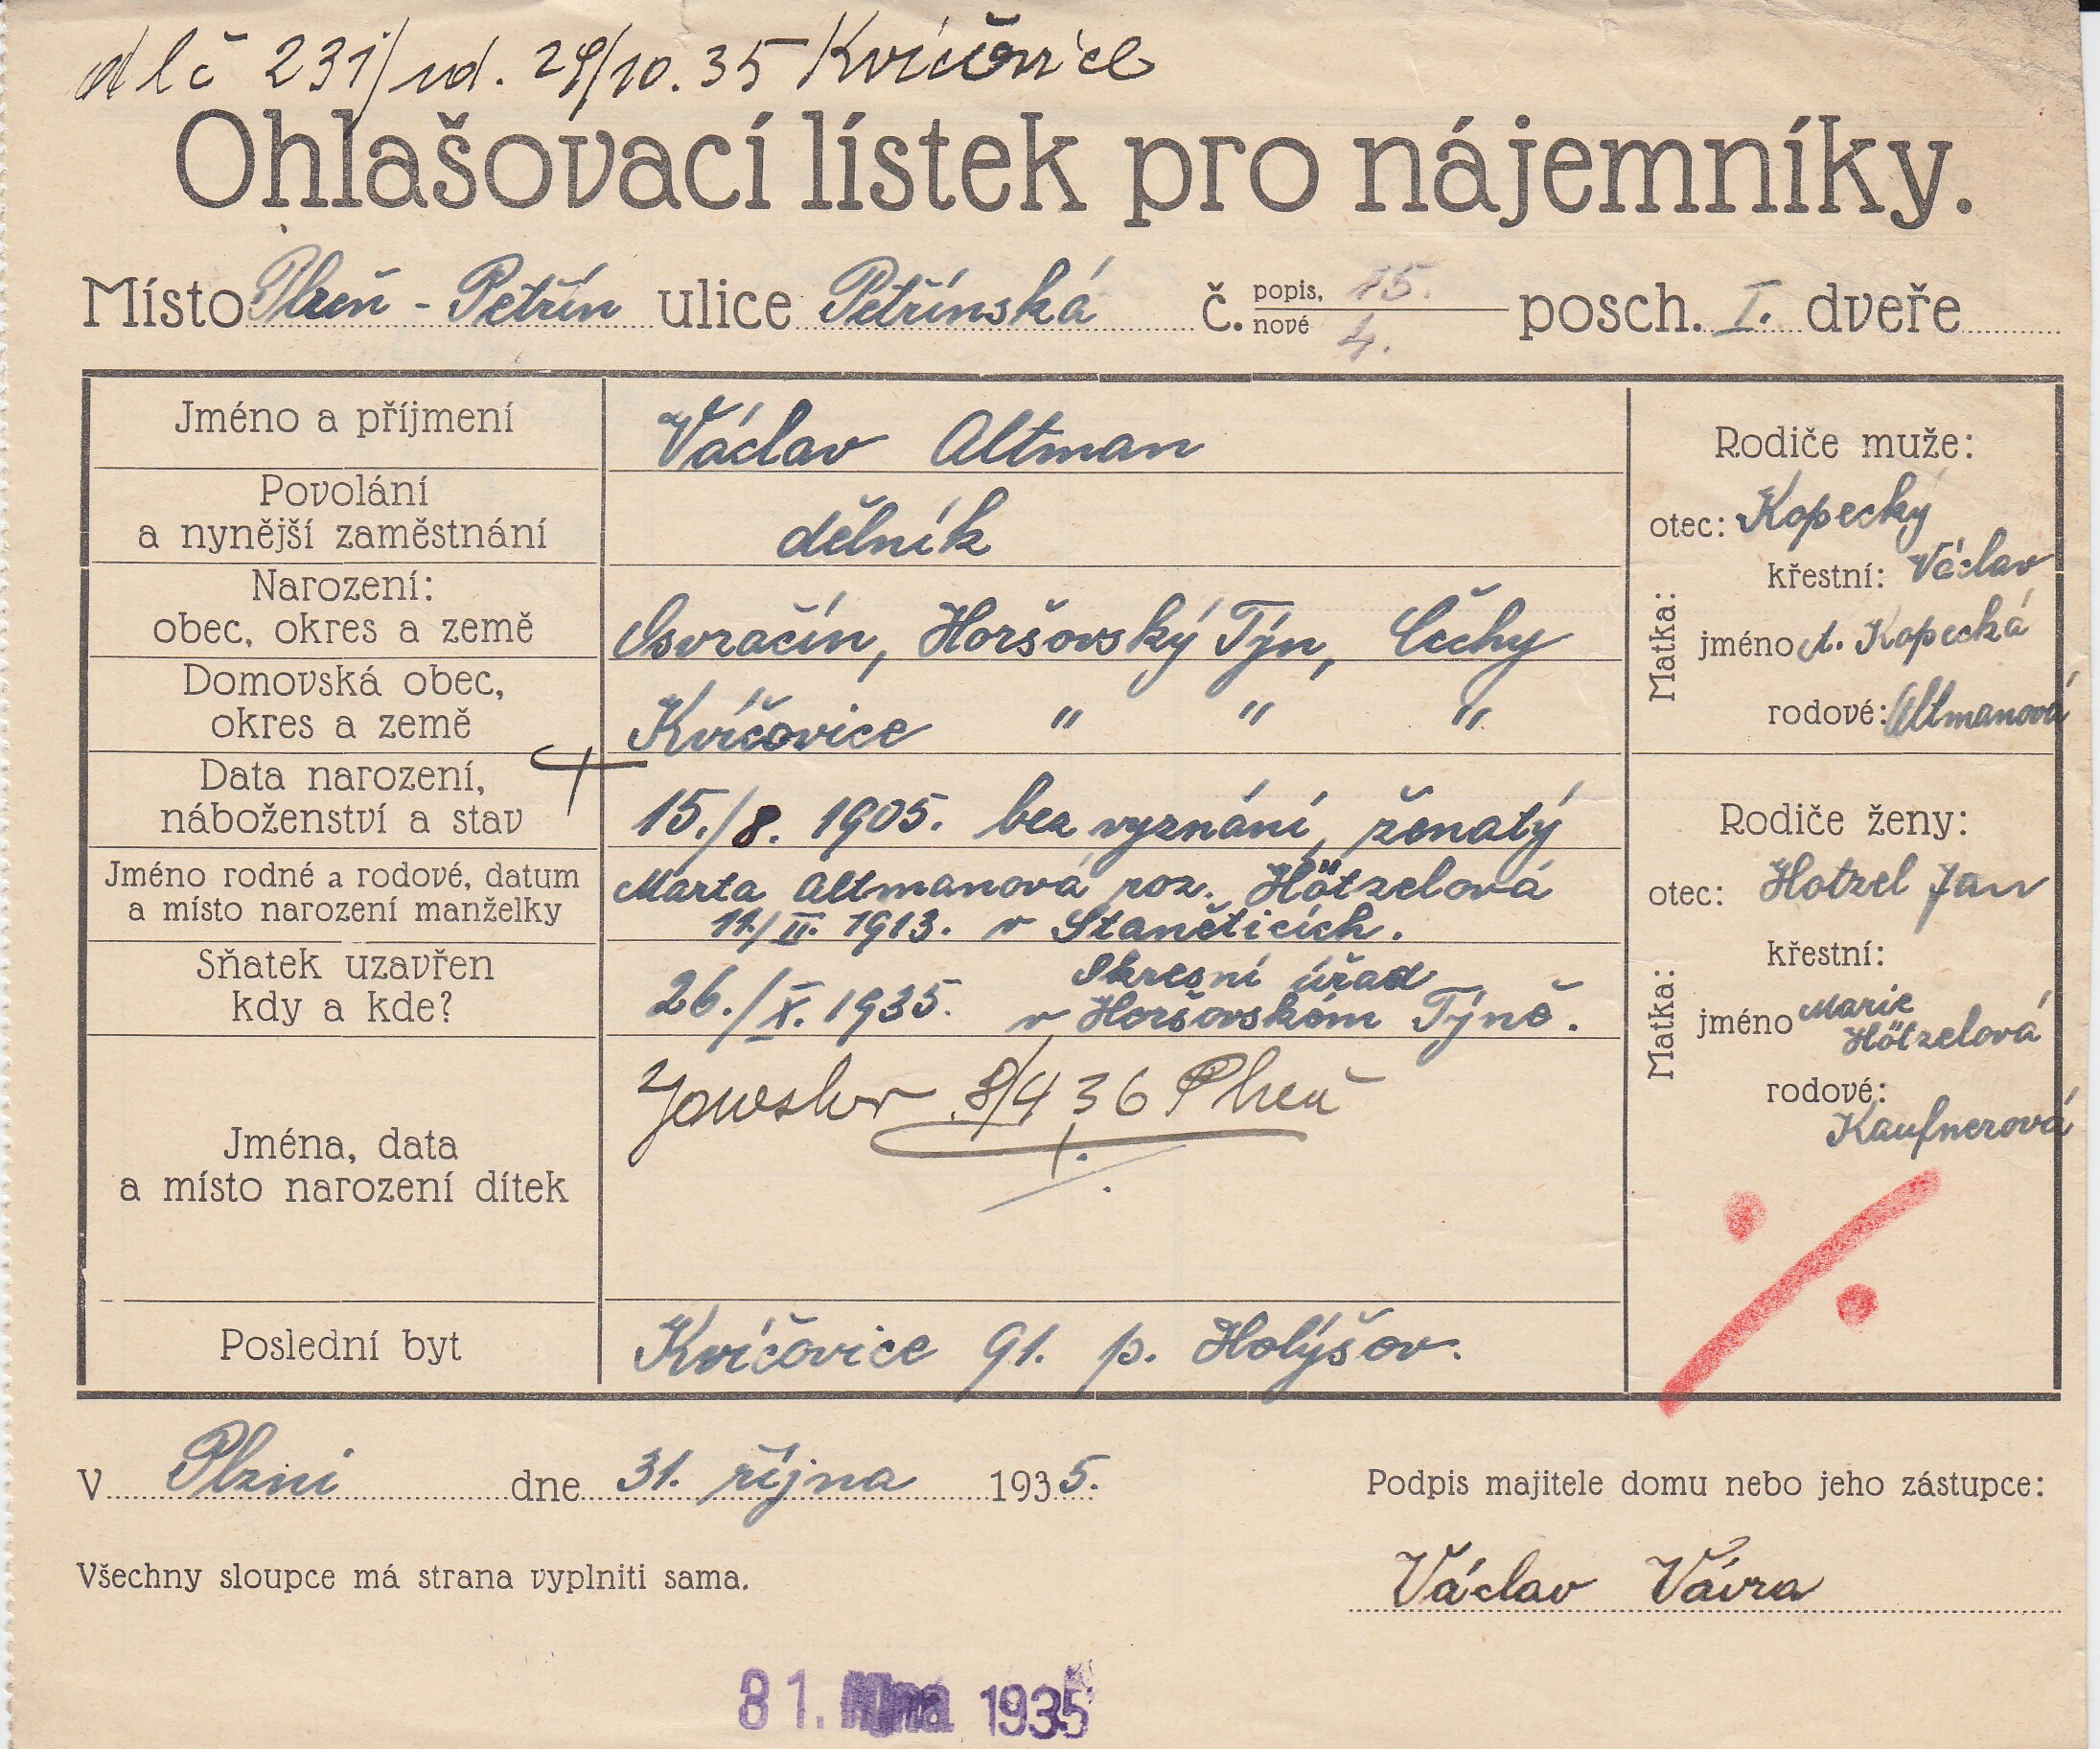 d lč 231/ ud. 29/10. 35 Kvíčovice
Ohlašovací lístek pro nájemníky.
Místo Plzeň - Petřín ulice Petřínská č. popis. 15. nové 4. posch. I. dveře
Jméno a příjmení
Václav Altman
Povolání
a nynější zaměstnání
dělník
Narození:
obec, okres a země
Osvračín, Horšovský Týn, Čechy
Domovská obec,
okres a země
Kvíčovice " " "
Data narození,
náboženství a stav
15./8. 1905. bez vyznání, ženatý
Jméno rodné a rodové, datum
a místo narození manželky
Marta Altmanová roz. Hötzelová
11./II. 1913. v Staněticích.
Sňatek uzavřen
kdy a kde?
26./X. 1935. Okresní úřad
v Horšovském Týně.
Jména, data
a místo narození dítek
Jaroslav 8/4 36 Plzeň
Poslední byt
Kvíčovice 91. p. Holýšov.
Rodiče muže:
otec: Kopecký
křestní: Václav
Matka:
jméno A. Kopecká
rodové: Altmanová
Rodiče ženy:
otec: Hotzel Jan
křestní:
Matka:
jméno Marie
Hötzelová
rodové:
Kaufnerová
V Plzni dne 31. října 1935.
Podpis majitele domu nebo jeho zástupce:
Všechny sloupce má strana vyplniti sama.
Václav Vávra
31. října 1935